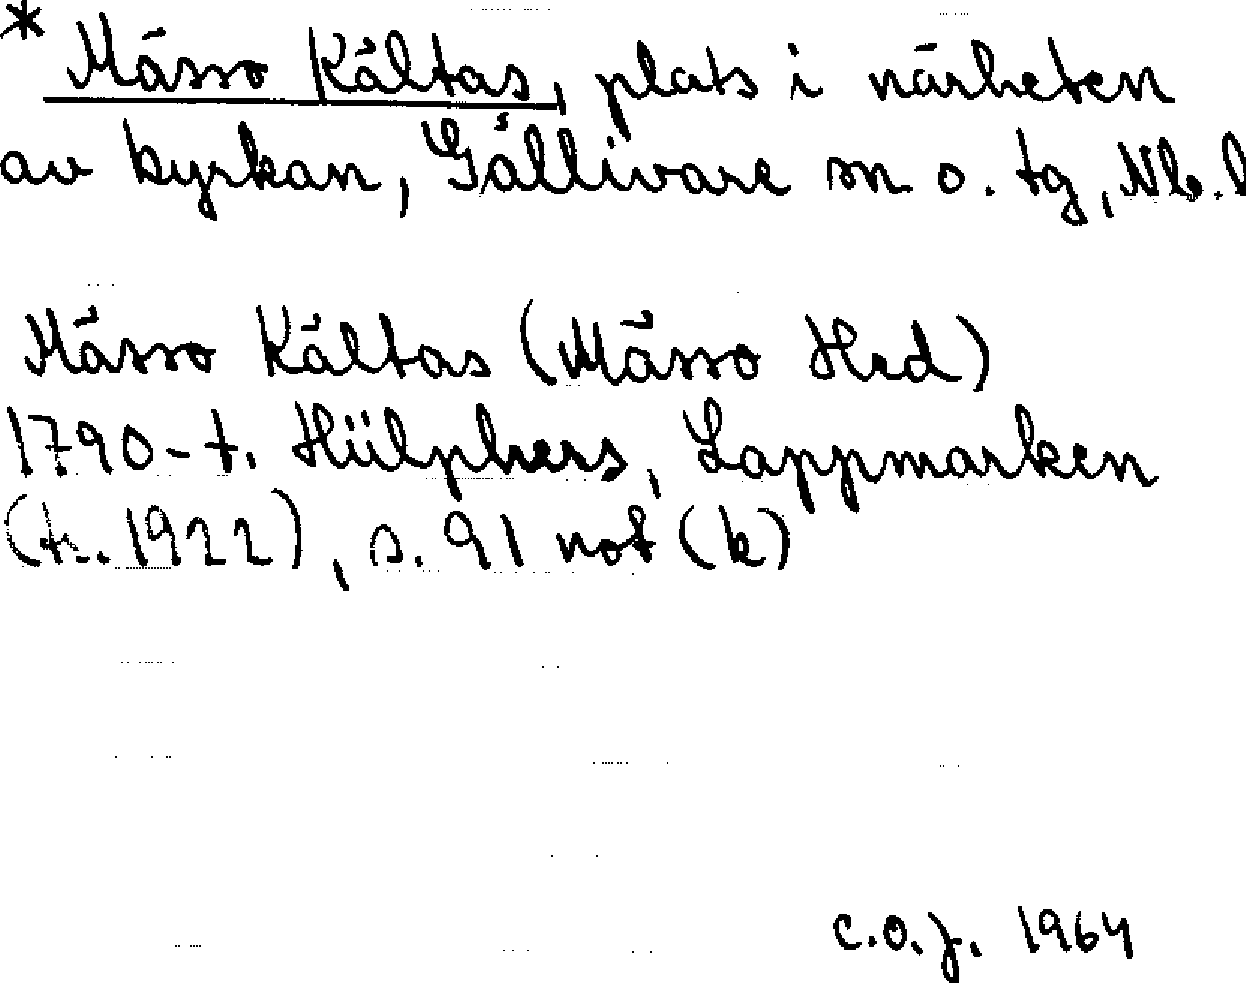 * Mässo Kältas, plats i närheten
av kyrkan, Gällivare sn o. tg, Nb. l
Mässo Kältas (Mässo Hed)
1790-t. Hülphers, Lappmarken
(tr. 1922), s. 91 not (k)
C.O.J. 1964